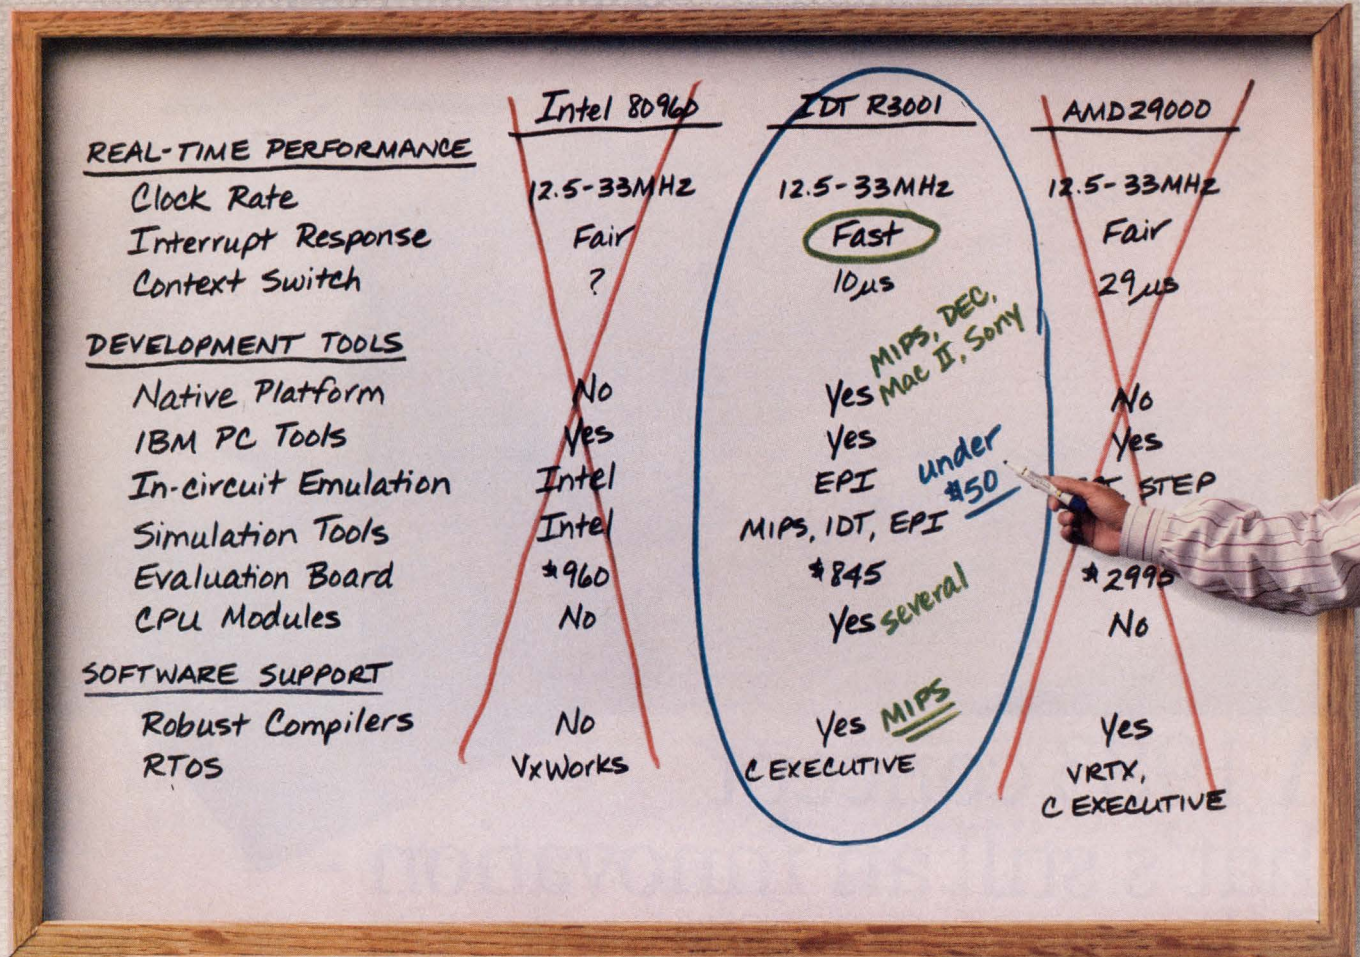 Intel 80960 IDT R3001 AMD29000
REAL-TIME PERFORMANCE
Clock Rate 12.5-33MHz 12.5-33MHz 12.5-33MHz
Interrupt Response Fair Fast Fair
Context Switch ? 10µs 29µs
MIPS, DEC,
Mac II, Sony
DEVELOPMENT TOOLS
Native Platform No Yes No
IBM PC Tools Yes Yes Yes
under
$50
In-circuit Emulation Intel EPI STEP
Simulation Tools Intel MIPS, IDT, EPI
Evaluation Board $960 $845 $2995
CPU Modules No Yes several No
SOFTWARE SUPPORT
Robust Compilers No Yes MIPS Yes
RTOS VxWorks C EXECUTIVE VRTX,
C EXECUTIVE